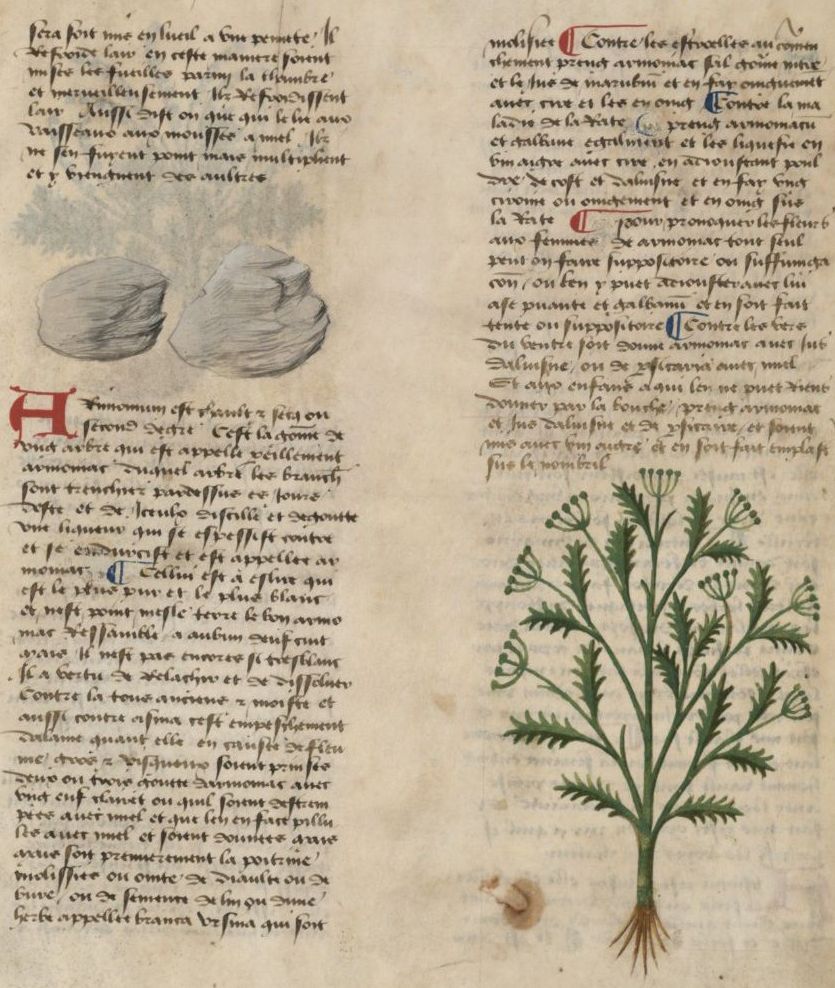 sera soit mis en lueil a une penette Il
Refroide lair en ceste maniere soient
mises les fueilles parmi la chambre
et merveilleusement Ilz Refroidissent
lair Aussi dist on que qui le lie aux
vaisseaux aux mousses a miel Ilz
ne sen fuyent point mais multiplient
et y viengnent des aultres
Armomum est chault z secq ou
second degre Cest la gome de
ung arbre qui est appelle peillement
armomac duquel arbre les branch
sont trenchies pardessus es Iours
deste et de Iceulx distille et degoutte
une liqueur qui se espessist contre
et se endurcist et est appellee ar
momac Cellui est a eslire qui
est le plus pur et le plus blanc
et nest point mesle terre le bon armo
mac Ressamble a aubun deuf cuit
mais Il nest pas encores si tresblanc
Il a vertu de Relachier et de dissoluer
Contre la tous ancienne z moiste et
aussi contre asma cest empeschement
dalaine quant elle en causee de fleu
me gros z visqueux soient prinses
deux ou trois goutte darmomac avec
ung euf clairet ou quil soient destrem
pees avec miel et que len en face pillu
les avec miel et soient donnees mais
mais soit premierement la poitrine
molifiee ou ointe de dialtee ou de
bure ou de semence de lin ou dune
herbe appellee branca ursina qui soit
molifiee Contre les escroelles au comen
chement preng armomac sal gome nitre
et le Ius de marubin et en fay oingnement
avec cire et les en oing Contre la ma
ladie de la Rate preng armomacu
et galbane egalment et les liquefie en
vin aigre avec cire en adioustant poul
dre de cost et daluisne et en fay ung
cirome ou oingement et en oing sus
la Rate pour provoquer les fleurs
aux femmes de armomac tout seul
peut on faire suppositoire ou suffumiga
con ou ben y puet adiouster avec lui
ase puante et galbanu et en soit fait
tente ou suppositoire Contre les vers
du ventre soit donne armomac avec Ius
daluisne ou de psicaria avec miel
Et aux enfans a qui len ne puet riens
donner par la bouche preng armomac
et Ius daluisne et de psicaire et soient
mis avec vin aigre et en soit fait emplast
sus le nombril